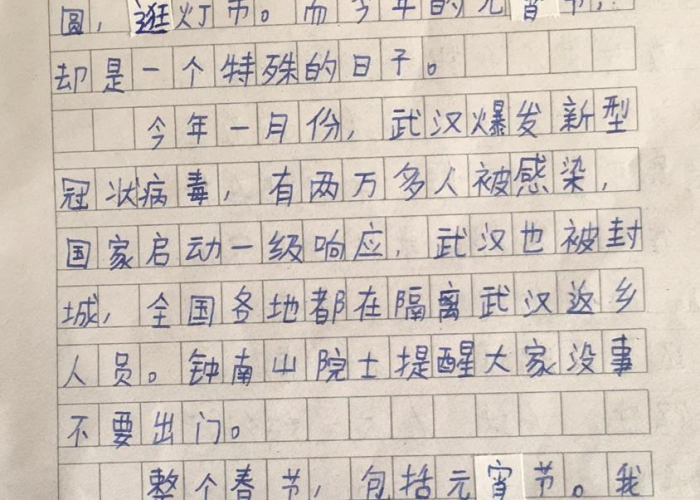 圆，逛灯节。而今年的元宵节，
却是一个特殊的日子。
今年一月份，武汉爆发新型
冠状病毒，有两万多人被感染，
国家启动一级响应，武汉也被封
城，全国各地都在隔离武汉返乡
人员。钟南山院士提醒大家没事
不要出门。
整个春节，包括元宵节。我